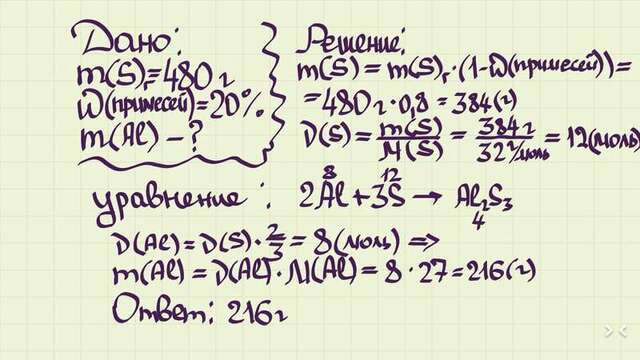 Дано:
m(S)г=480 г
W(примесей)=20%
m(Al) – ?
Решение:
m(S) = m(S)г·(1-W(примесей))=
= 480 г · 0,8 = 384(г)
D(S) = m(S)/M(S) = 384 г/32 г/моль = 12(моль)
8 12
уравнение: 2Al + 3S → Al₂S₃
4
D(Al) = D(S) · 2/3 = 8(моль) =>
m(Al) = D(Al) · M(Al) = 8 · 27 = 216(г)
Ответ: 216 г